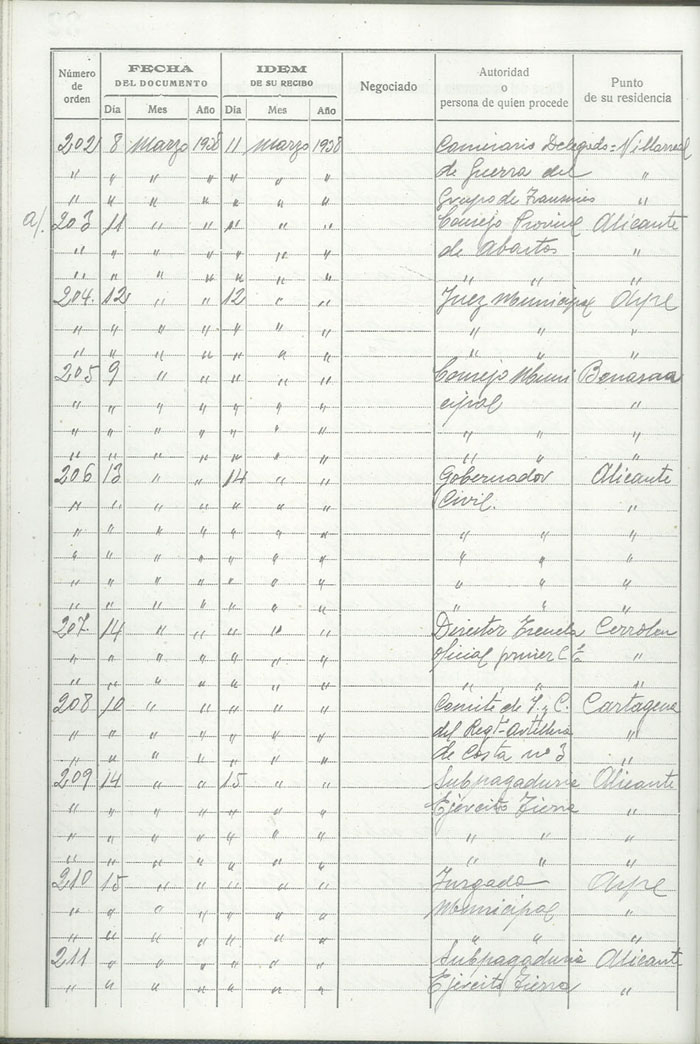 Número de orden
FECHA DEL DOCUMENTO
IDEM DE SU RECIBO
Negociado
Autoridad o persona de quien procede
Punto de su residencia
Día Mes Año Día Mes Año
2021 8 Marzo 1938 11 Marzo 1938 Comisario Delegado = Villarreal
" " " " " " " de Guerra del "
" " " " " " " Grupo de "
a/. 203 11 " " 11 " " Consejo Provinal Alicante
" " " " " " " de Abastos "
" " " " " " " " " "
204. 12 " " 12 " " Juez Municipal Aspe
" " " " " " " " " "
" " " " " " " " " "
205 9 " " " " " Consejo Muni
" " " " " " " cipal "
" " " " " " " " " "
" " " " " " " " " "
206 13 " " 14 " " Gobernador Alicante
" " " " " " " Civil. "
" " " " " " " " " "
" " " " " " " " " "
" " " " " " " " " "
" " " " " " " " " "
207. 14 " " " " " Director Escuela
" " " " " " " oficial primer "
" " " " " " " " " "
208 10 " " " " " Comite de Y. C. Cartagena
" " " " " " " del Regt. Artilleria "
" " " " " " " de Costa nº 3 "
209 14 " " 15 " " Subpagaduria Alicante
" " " " " " " Ejército Tierra "
" " " " " " " " " "
" " " " " " " " " "
210 15 " " " " " Juzgado Aspe
" " " " " " " Municipal "
" " " " " " " " " "
211 " " " " " " Subpagaduria Alicante
" " " " " " " Ejército Tierra "